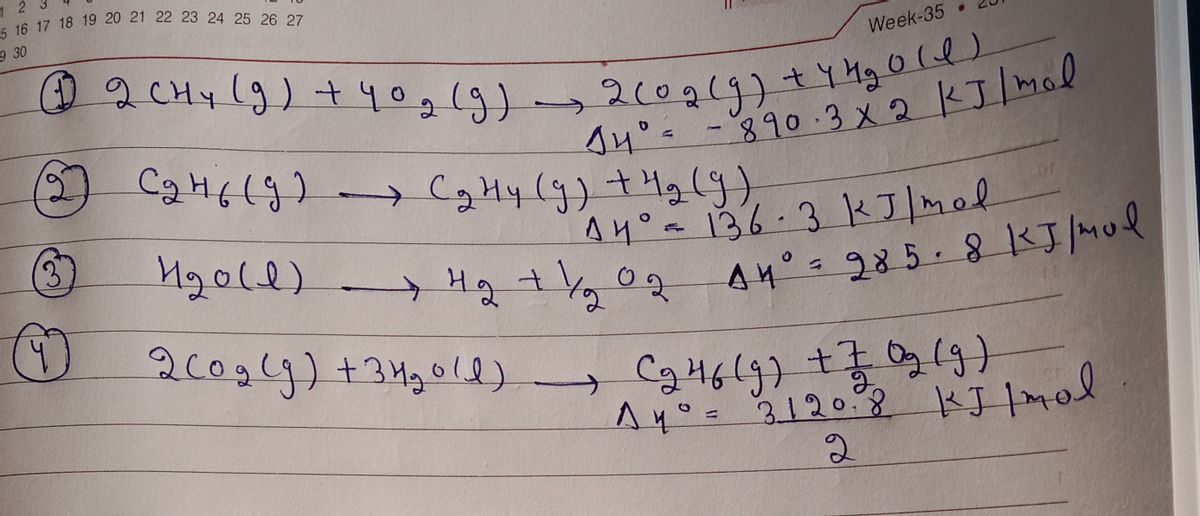 1 2 3 4
5 16 17 18 19 20 21 22 23 24 25 26 27
9 30
Week-35 •
① 2CH₄(g) + 4O₂(g) → 2CO₂(g) + 4H₂O(l)
ΔH° = -890.3 × 2 KJ/mol
② C₂H₆(g) → C₂H₄(g) + H₂(g)
ΔH° = 136.3 KJ/mol
③ H₂O(l) → H₂ + 1/2 O₂ ΔH° = 285.8 KJ/mol
④ 2CO₂(g) + 3H₂O(l) → C₂H₆(g) + 7/2 O₂(g)
ΔH° = 3120.8/2 KJ/mol